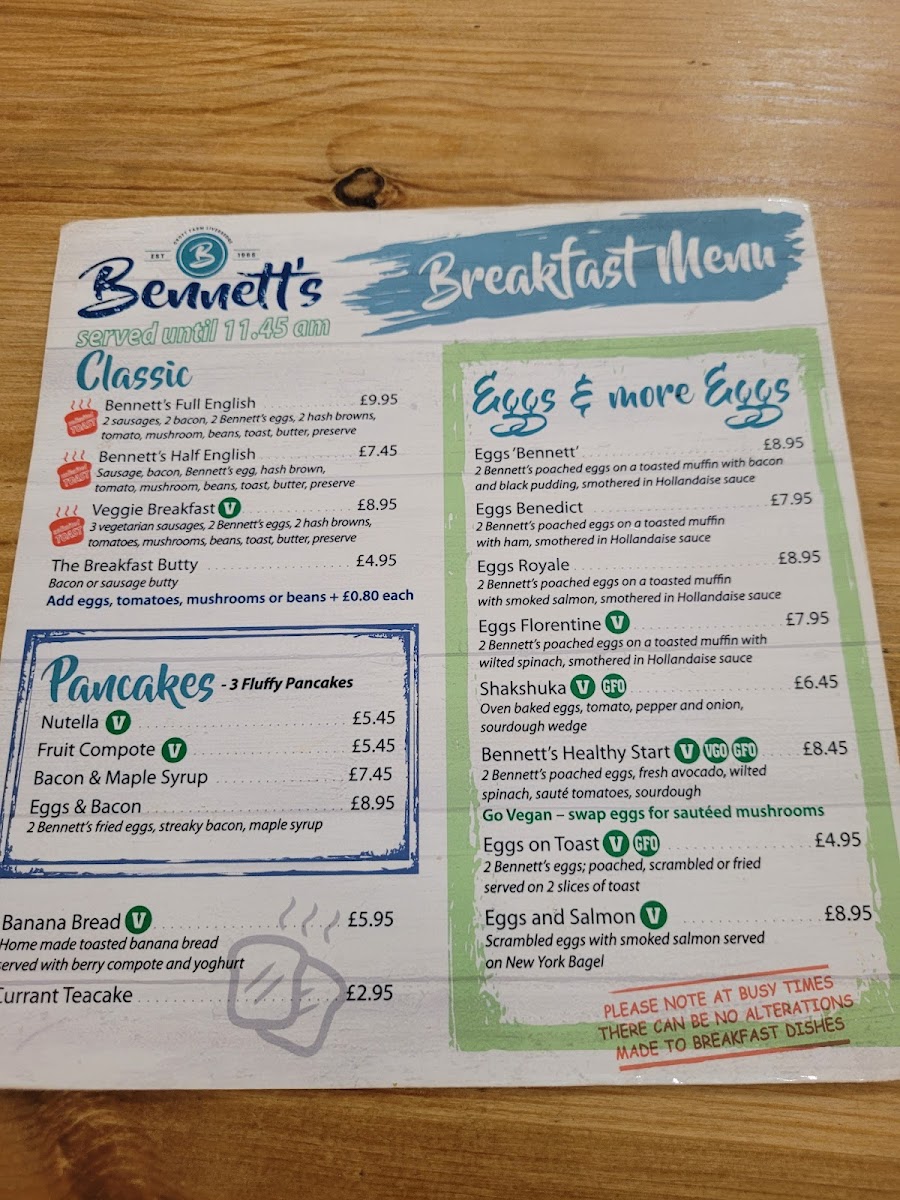 EST 1966
B
Bennett's
Breakfast Menu
served until 11.45 am
Classic
Bennett's Full English £9.95
2 sausages, 2 bacon, 2 Bennett's eggs, 2 hash browns,
tomato, mushroom, beans, toast, butter, preserve
Bennett's Half English £7.45
Sausage, bacon, Bennett's egg, hash brown,
tomato, mushroom, beans, toast, butter, preserve
Veggie Breakfast V £8.95
3 vegetarian sausages, 2 Bennett's eggs, 2 hash browns,
tomatoes, mushrooms, beans, toast, butter, preserve
The Breakfast Butty £4.95
Bacon or sausage butty
Add eggs, tomatoes, mushrooms or beans + £0.80 each
Pancakes - 3 Fluffy Pancakes
Nutella V £5.45
Fruit Compote V £5.45
Bacon & Maple Syrup £7.45
Eggs & Bacon £8.95
2 Bennett's fried eggs, streaky bacon, maple syrup
Banana Bread V £5.95
Home made toasted banana bread
served with berry compote and yoghurt
Currant Teacake £2.95
Eggs & more Eggs
Eggs 'Bennett' £8.95
2 Bennett's poached eggs on a toasted muffin with bacon
and black pudding, smothered in Hollandaise sauce
Eggs Benedict £7.95
2 Bennett's poached eggs on a toasted muffin
with ham, smothered in Hollandaise sauce
Eggs Royale £8.95
2 Bennett's poached eggs on a toasted muffin
with smoked salmon, smothered in Hollandaise sauce
Eggs Florentine V £7.95
2 Bennett's poached eggs on a toasted muffin with
wilted spinach, smothered in Hollandaise sauce
Shakshuka V GFO £6.45
Oven baked eggs, tomato, pepper and onion,
sourdough wedge
Bennett's Healthy Start V VGO GFO £8.45
2 Bennett's poached eggs, fresh avocado, wilted
spinach, sauté tomatoes, sourdough
Go Vegan – swap eggs for sautéed mushrooms
Eggs on Toast V GFO £4.95
2 Bennett's eggs; poached, scrambled or fried
served on 2 slices of toast
Eggs and Salmon V £8.95
Scrambled eggs with smoked salmon served
on New York Bagel
PLEASE NOTE AT BUSY TIMES
THERE CAN BE NO ALTERATIONS
MADE TO BREAKFAST DISHES